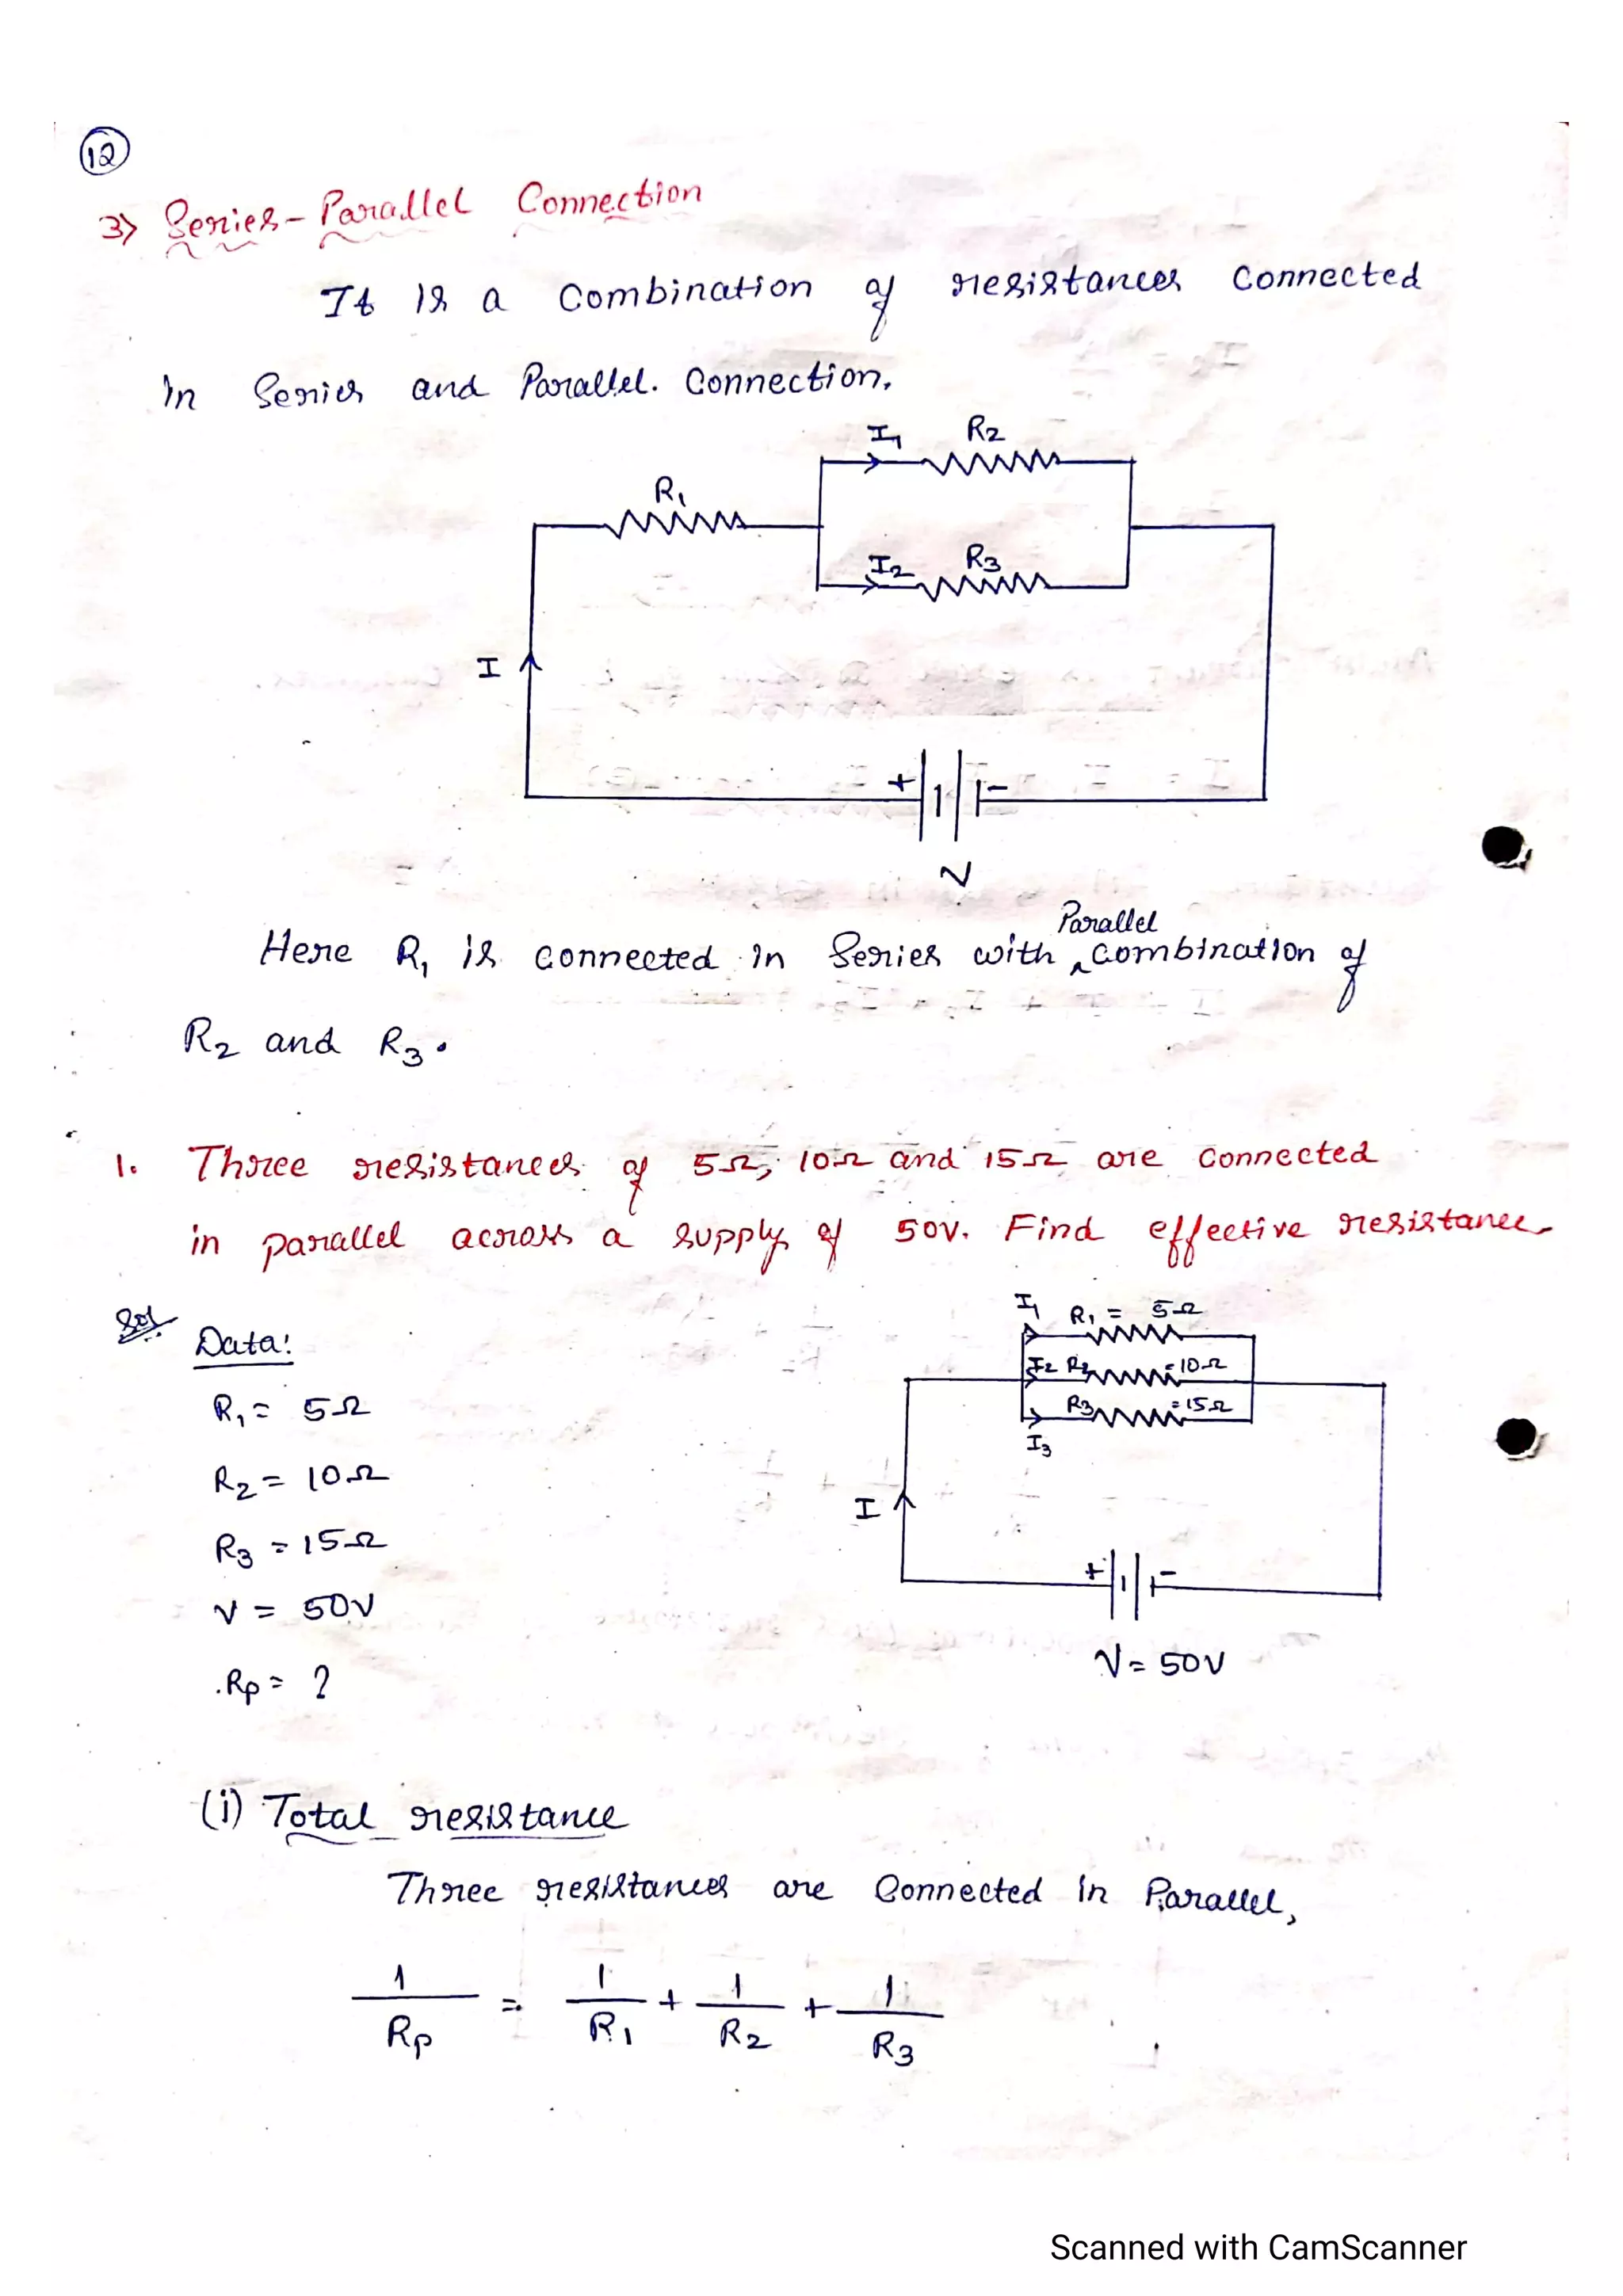 12
3) Series - Parallel Connection
It is a combination of resistances connected
in Series and Parallel. Connection.
I1 R2
R1
I2 R3
I
+ -
V
Parallel
Here R1 is connected in Series with ^ combination of
R2 and R3.
1. Three resistances of 5Ω, 10Ω and 15Ω are connected
in parallel across a supply of 50V. Find effective resistance
Sol
Data:
I1 R1 = 5Ω
I2 R2 = 10Ω
R3 = 15Ω
I3
I
+ -
V = 50V
R1 = 5Ω
R2 = 10Ω
R3 = 15Ω
V = 50V
Rp = ?
(i) Total resistance
Three resistances are Connected in Parallel,
1/Rp = 1/R1 + 1/R2 + 1/R3
Scanned with CamScanner